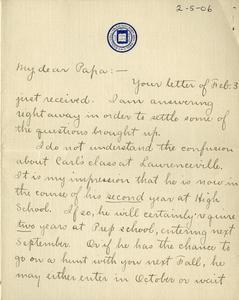 2-5-06
My dear Papa:—
Your letter of Feb. 3
just received. I am answering
right away in order to settle some
of the questions brought up.
I do not understand the confusion
about Carl's class at Lawrenceville.
It is my impression that he is now in
the course of his second year at High
School. If so, he will certainly require
two years at Prep school, entering next
September. Or if he has the chance to
go on a hunt with you next Fall, he
may either enter in October or wait